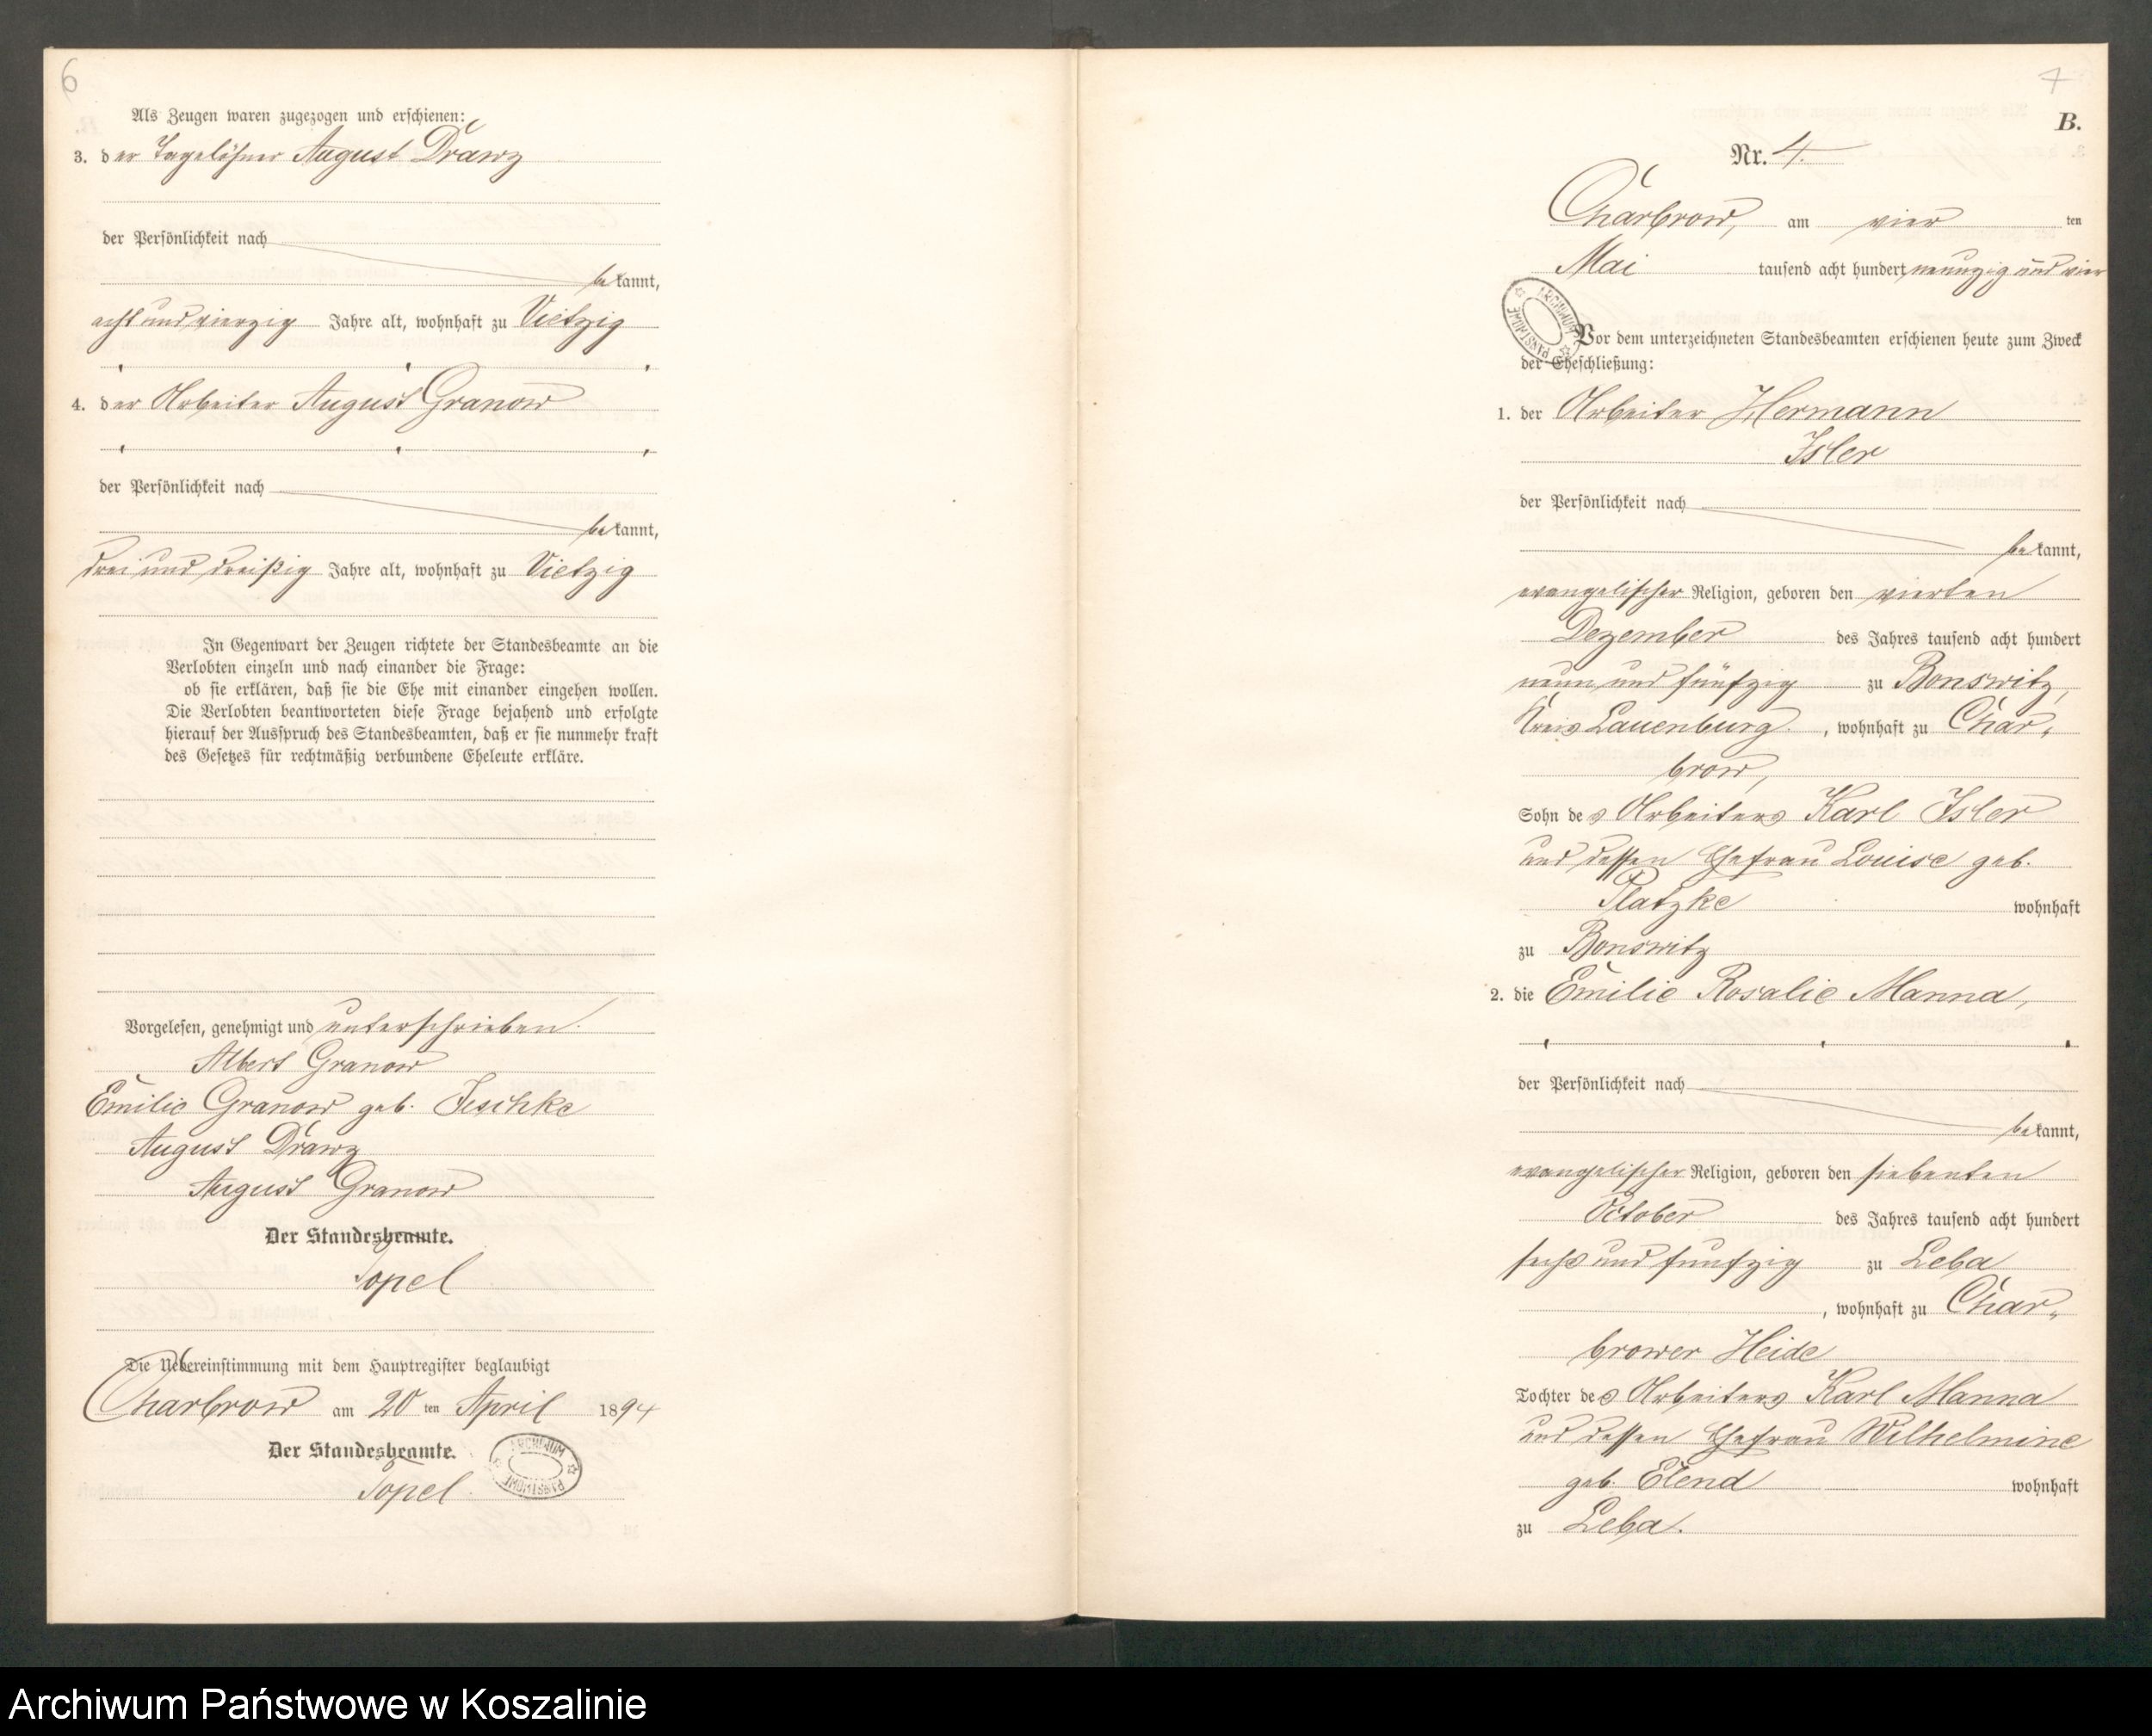 6
Als Zeugen waren zugezogen und erschienen:
3. der Tagelöhner August Drawz
der Persönlichkeit nach
bekannt,
acht und vierzig Jahre alt, wohnhaft zu Vietzig
4. der Arbeiter August Granow
der Persönlichkeit nach
bekannt,
drei und dreißig Jahre alt, wohnhaft zu Vietzig
In Gegenwart der Zeugen richtete der Standesbeamte an die
Verlobten einzeln und nach einander die Frage:
ob sie erklären, daß sie die Ehe mit einander eingehen wollen.
Die Verlobten beantworteten diese Frage bejahend und erfolgte
hierauf der Ausspruch des Standesbeamten, daß er sie nunmehr kraft
des Gesetzes für rechtmäßig verbundene Eheleute erkläre.
Vorgelesen, genehmigt und unterschrieben.
Albert Granow
Emilie Granow geb. Jeschke
August Drawz
August Granow
Der Standesbeamte.
Topel
Die Uebereinstimmung mit dem Hauptregister beglaubigt
Charbrow am 20ten April 1894
Der Standesbeamte.
Topel.
ARCHIWUM PAŃSTWOWE
7
B.
Nr. 4.
Charbrow, am vierten
Mai tausend acht hundert neunzig und vier
ARCHIWUM PAŃSTWOWE
Vor dem unterzeichneten Standesbeamten erschienen heute zum Zweck
der Eheschließung:
1. der Arbeiter Hermann
Isler
der Persönlichkeit nach
bekannt,
evangelischer Religion, geboren den vierten
Dezember des Jahres tausend acht hundert
neun und fünfzig zu Bonswitz,
Kreis Lauenburg, wohnhaft zu Char-
brow,
Sohn des Arbeiters Karl Isler
und dessen Ehefrau Louise geb.
Platzke wohnhaft
zu Bonswitz
2. die Emilie Rosalie Manna,
der Persönlichkeit nach
bekannt,
evangelischer Religion, geboren den siebenten
October des Jahres tausend acht hundert
sechs und funfzig zu Leba
, wohnhaft zu Char-
brower Heide
Tochter des Arbeiters Karl Manna
und dessen Ehefrau Wilhelmine
geb. Elend wohnhaft
zu Leba.
Archiwum Państwowe w Koszalinie